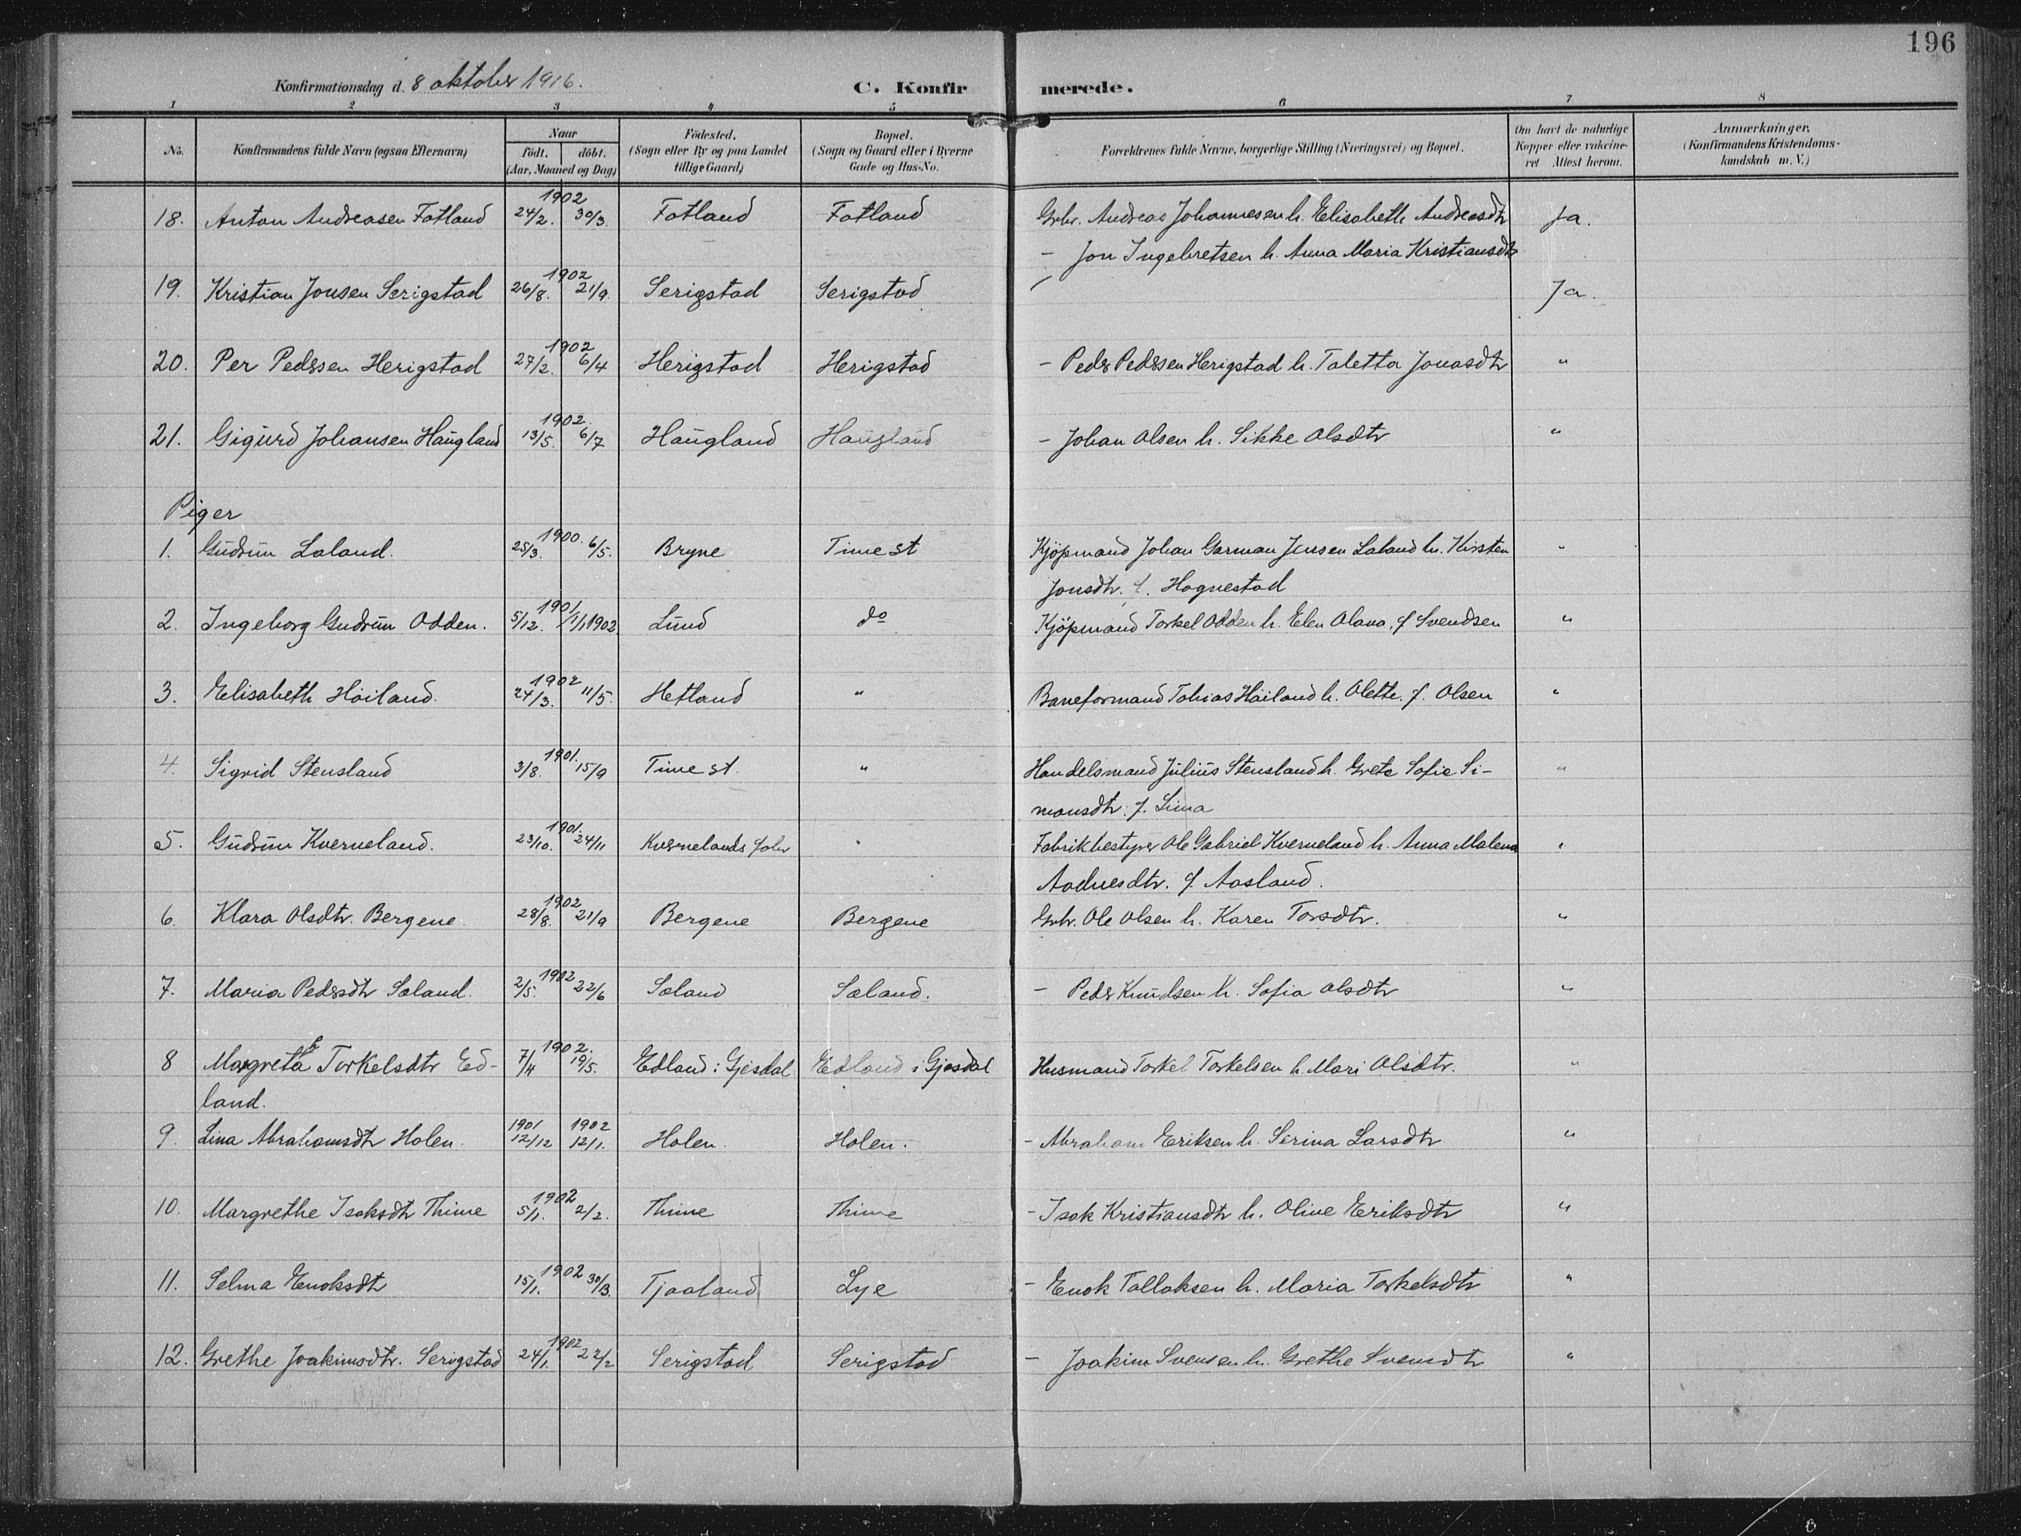 196
Konfirmationsdag d. 8 oktober 1916.
C. Konfirmerede.
1 2 3 4 5 6 7 8
No. Konfirmandens fulde Navn (ogsaa Efternavn) Naar født. døbt. (Aar, Maaned og Dag) Fødested. (Sogn eller By og paa Landet tillige Gaard) Bopæl. (Sogn og Gaard eller i Byerne Gade og Hus-No. Forældrenes fulde Navne, borgerlige Stilling (Næringsvei) og Bopæl. Om havt de naturlige Kopper eller vakcineret Attest herom. Anmærkninger. (Konfirmandens Kristendomskundskab m. V.)
1902
18. Anton Andreasen Fotland 24/2. 30/3. Fotland Fotland Grbr. Andreas Johannesen h. Elisabeth Andreasdtr Ja.
- Jon Ingebretsen h. Anna Maria Kristiansdtr
1902
19. Kristian Jonsen Serigstad 26/8. 21/9. Serigstad Serigstad Ja.
1902
20. Per Pedersen Herigstad 27/2. 6/4 Herigstad Herigstad - Peder Pedersen Herigstad h. Taletta Jonasdtr "
1902.
21. Sigurd Johansen Haugland 13/5. 6/7 Haugland Haugland - Johan Olsen h. Sikke Olsdtr "
Piger
1900.
1. Gudrun Laland. 25/3. 6/5. Bryne Time st Kjøpmand Johan Garman Jensen Laland h. Kirsten "
Jonsdtr. f. Hognestad
1901
2. Ingeborg Gudrun Odden. 5/12. 1/1 1902 Lund do Kjøpmand Torkel Odden h. Elen Olava f Svendsen "
1902
3. Elisabeth Høiland. 24/3. 11/5. Hetland " Baneformand Tobias Høiland h. Olette. f. Olsen "
1901.
4. Sigrid Stensland 3/8. 15/9 Time st. " Handelsmand Julius Stensland h. Grete Sofie Si- "
monsdtr. f. Lima
1901.
5. Gudrun Kverneland. 23/10. 24/11 Kvernelands fabr " Fabrikbestyrer Ole Gabriel Kverneland h. Anna Malena "
Aadnesdtr. f. Aasland.
1902
6. Klara Olsdtr. Bergene. 28/8. 21/9 Bergene Bergene Grbr. Ole Olsen h. Karen Torsdtr. "
1902
7. Maria Pedersdtr Søland. 2/5. 22/6 Søland Søland. - Peder Knudsen h. Sofia Olsdtr "
1902.
8 Margreta Torkelsdtr Ed- 7/4 19/5. Edland i Gjesdal Edland i Gjesdal Husmand Torkel Torkelsen h. Mari Olsdtr. "
land.
1901 1902
9. Lina Abrahamsdtr Holen. 12/12 12/1. Holen. Holen. - Abraham Eriksen h. Serina Larsdtr "
1902
10. Margrethe Isaksdtr Thime 5/1. 2/2. Thime Thime - Isak Kristiansdtr h. Oline Eriksdtr "
1902
11. Selma Enoksdtr 15/1. 30/3. Tjaaland Lye - Enok Tollaksen h. Maria Torkelsdtr "
1902
12. Grethe Joakimsdtr. Serigstad 24/1. 22/2 Serigstad Serigstad - Joakim Svensen h. Grethe Svensdtr "